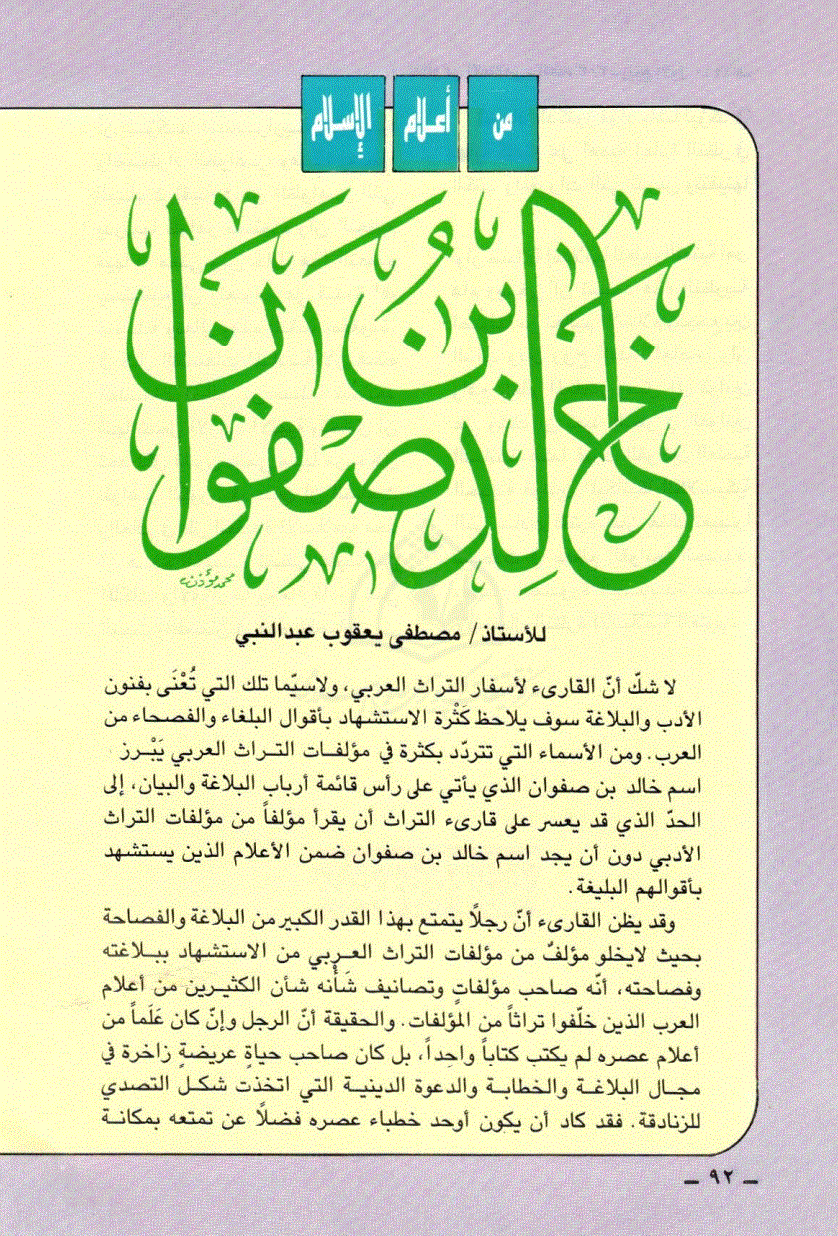 من أعلام الإسلام
خالد بن صفوان
محمد مؤذن
للأستاذ/ مصطفى يعقوب عبدالنبي
لا شكّ أنّ القارىء لأسفار التراث العربي، ولاسيّما تلك التي تُعْنَى بفنون
الأدب والبلاغة سوف يلاحظ كَثْرة الاستشهاد بأقوال البلغاء والفصحاء من
العرب. ومن الأسماء التي تتردّد بكثرة في مؤلفات التراث العربي يَبْرز
اسم خالد بن صفوان الذي يأتي على رأس قائمة أرباب البلاغة والبيان، إلى
الحدّ الذي قد يعسر على قارىء التراث أن يقرأ مؤلفاً من مؤلفات التراث
الأدبي دون أن يجد اسم خالد بن صفوان ضمن الأعلام الذين يستشهد
بأقوالهم البليغة.
وقد يظن القارىء أنّ رجلًا يتمتع بهذا القدر الكبير من البلاغة والفصاحة
بحيث لايخلو مؤلفٌ من مؤلفات التراث العربي من الاستشهاد ببلاغته
وفصاحته، أنّه صاحب مؤلفاتٍ وتصانيف شَأْنه شأن الكثيرين من أعلام
العرب الذين خلّفوا تراثاً من المؤلفات. والحقيقة أنّ الرجل وإنّ كان عَلَماً من
أعلام عصره لم يكتب كتاباً واحِداً، بل كان صاحب حياةٍ عريضةٍ زاخرة في
مجال البلاغة والخطابة والدعوة الدينية التي اتخذت شكل التصدي
للزنادقة. فقد كاد أن يكون أوحد خطباء عصره فضلًا عن تمتعه بمكانة
ـ ٩٢ ـ